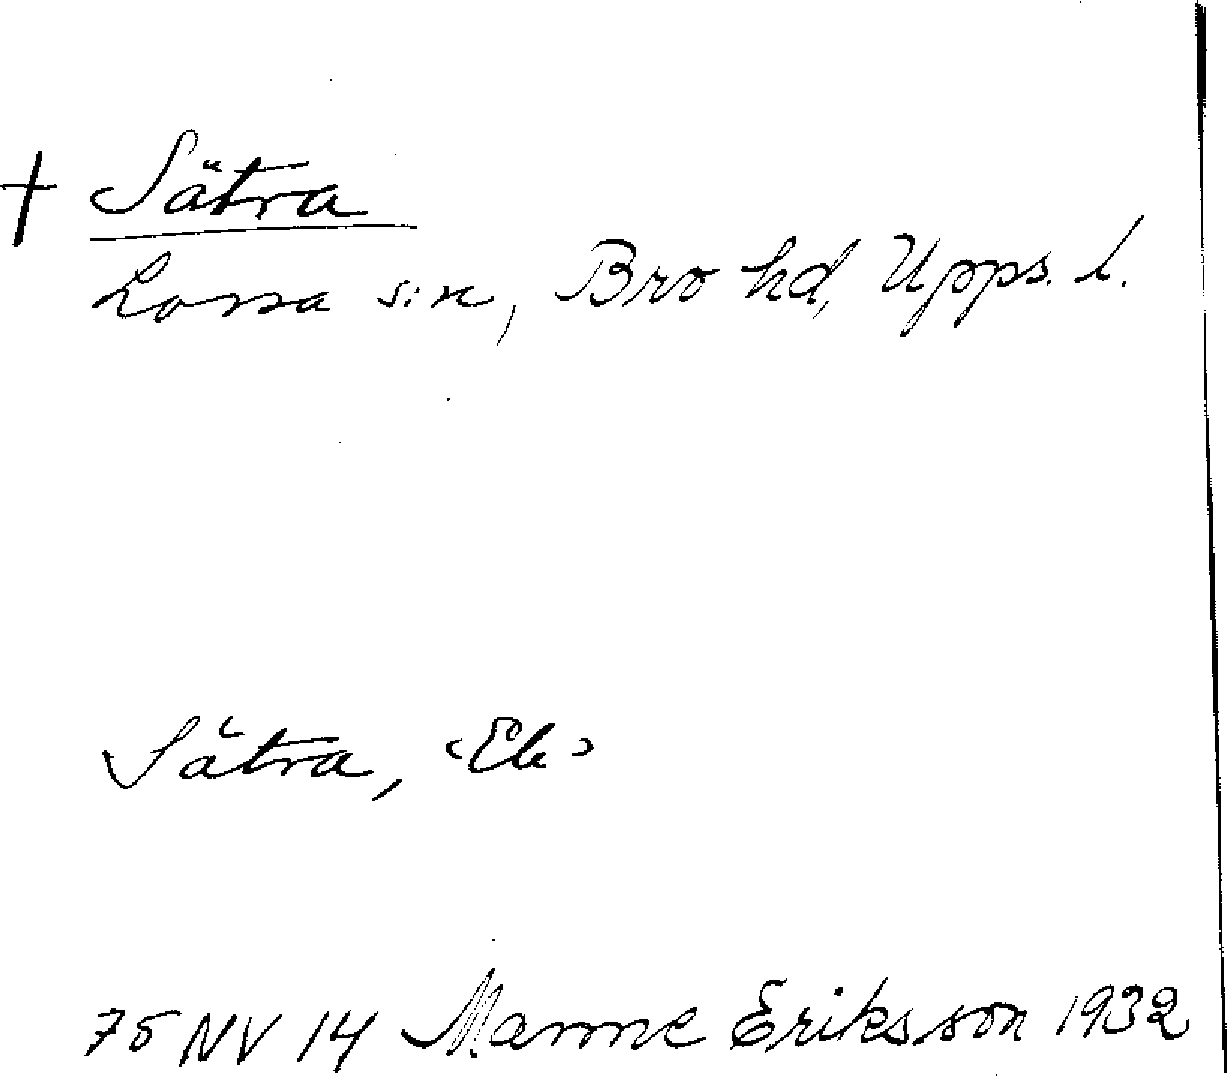 + Sätra
Lossa s:n, Bro hd, Upps. l.
Sätra, <Ek>
75 NV 14 Manne Eriksson 1932